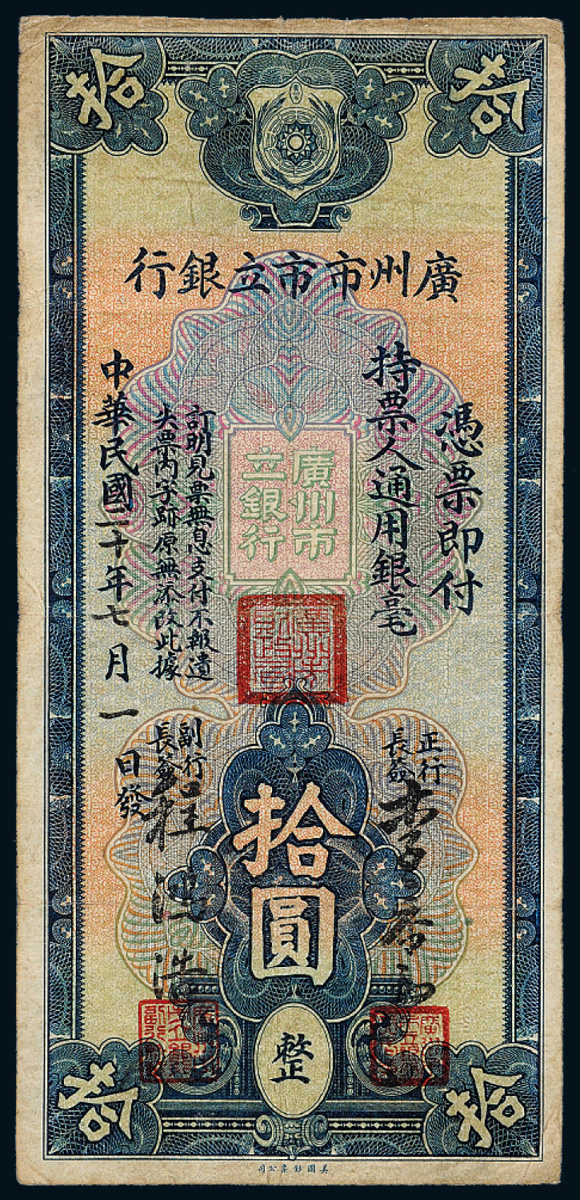 拾
拾
廣州市市立銀行
憑票即付
持票人通用銀毫
廣州市
立銀行
訂明見票無息支付不報遺
失票內字跡原無添改此據
中華民國二十年七月一日發
正行
長簽
拾圓
整
副行
長簽
拾
拾
美國鈔票公司